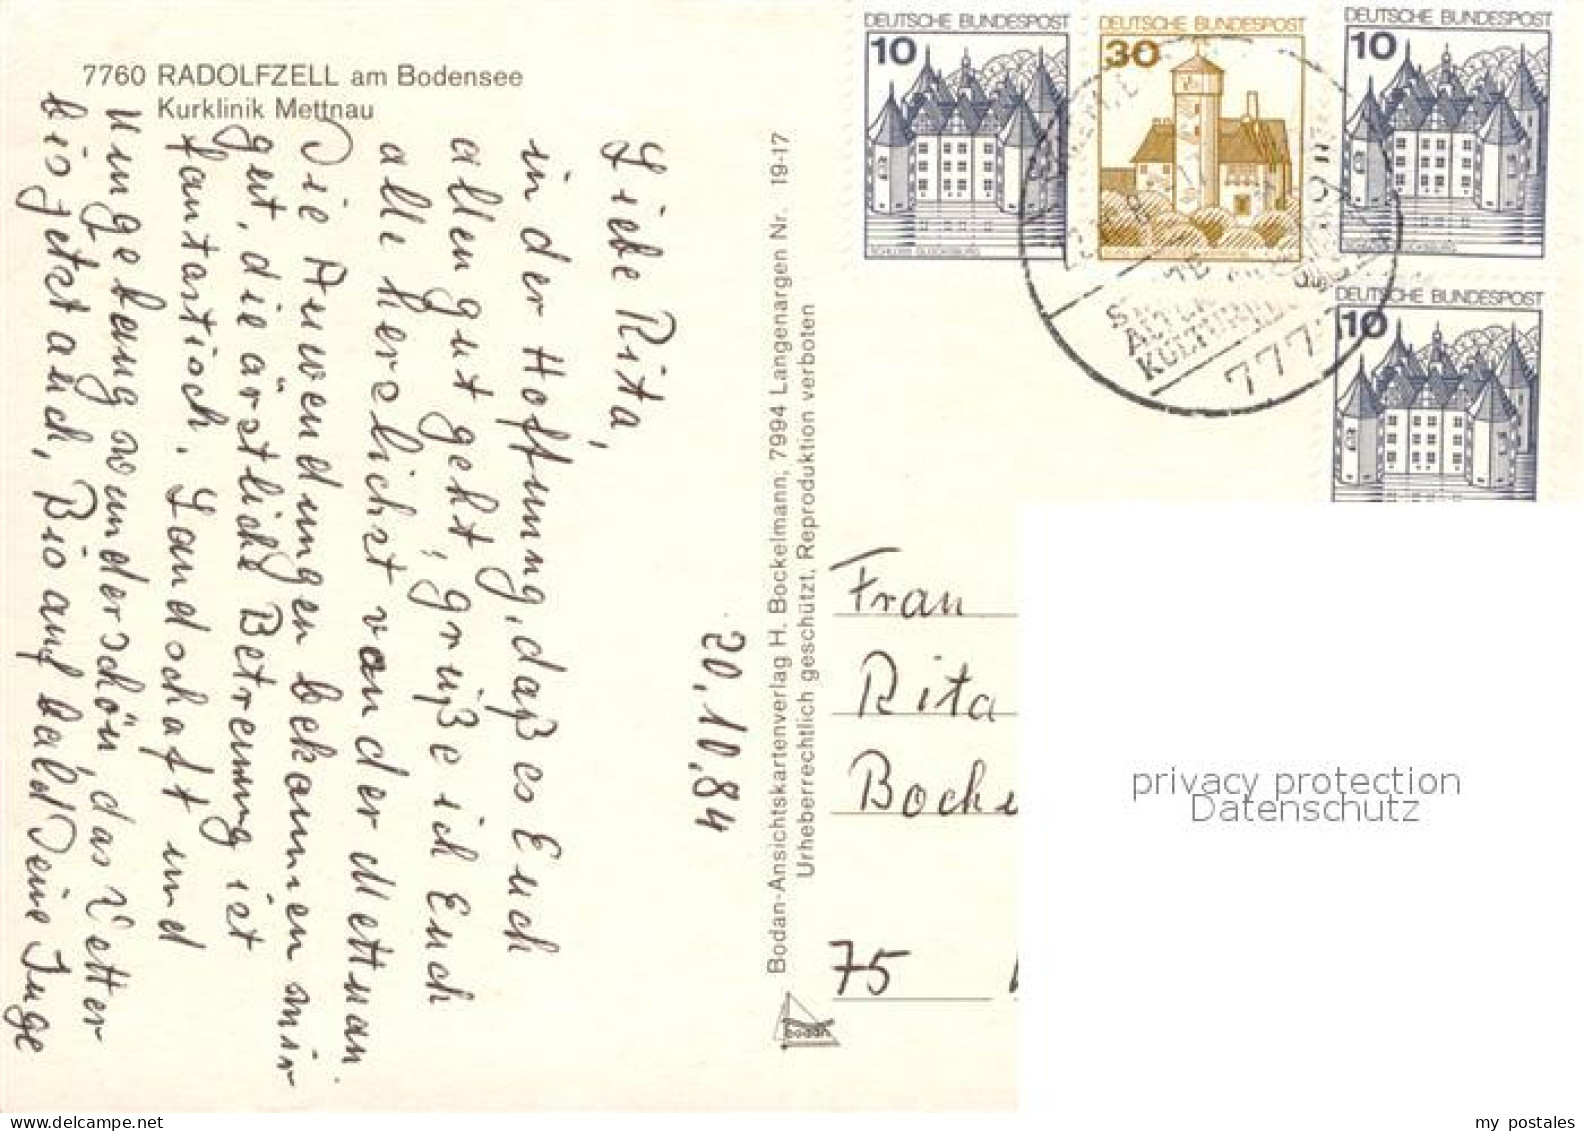 7760 RADOLFZELL am Bodensee
Kurklinik Mettnau
20.10.84
Liebe Rita,
in der Hoffnung, daß es Euch
allen gut geht, grüße ich Euch
alle herzlichst von der Mettnau.
Die Anwendungen bekommen mir
gut, die ärztliche Betreuung ist
fantastisch. Landschaft und
Umgebung wunderschön, das Wetter
bis jetzt auch. Bis auf bald Deine Inge
Bodan-Ansichtskartenverlag H. Bockelmann, 7994 Langenargen Nr. 19-17
Urheberrechtlich geschützt, Reproduktion verboten
bodan
DEUTSCHE BUNDESPOST
10
SCHLOSS GLÜCKSBURG
DEUTSCHE BUNDESPOST
30
DEUTSCHE BUNDESPOST
10
SCHLOSS GLÜCKSBURG
DEUTSCHE BUNDESPOST
10
ALTER
KULTUR
777
Frau
Rita
Bock
75
privacy protection
Datenschutz
my postales